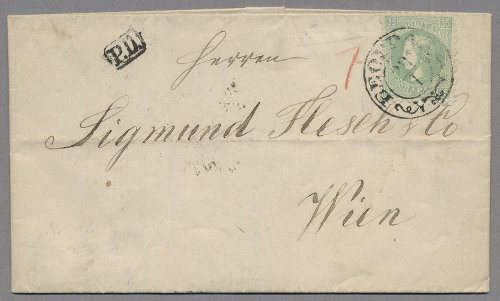 P.D.
Herren
7
35 35
Sigmund Flesch & Co
Wien